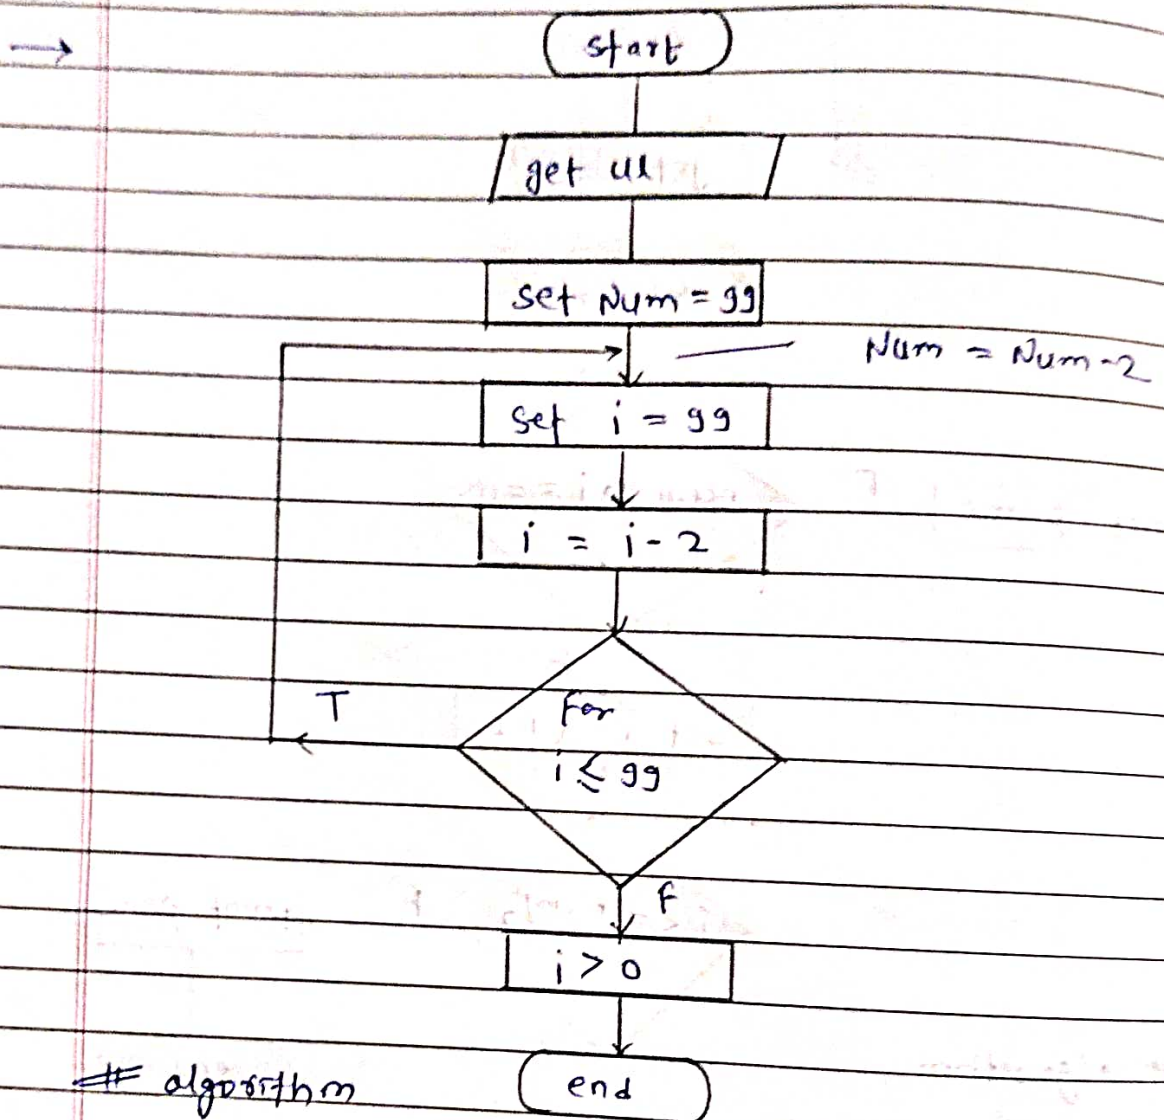 start
get ul
set Num = 99
Num = Num-2
set i = 99
i = i-2
T
for
i ≤ 99
F
i > 0
end
# algorithm